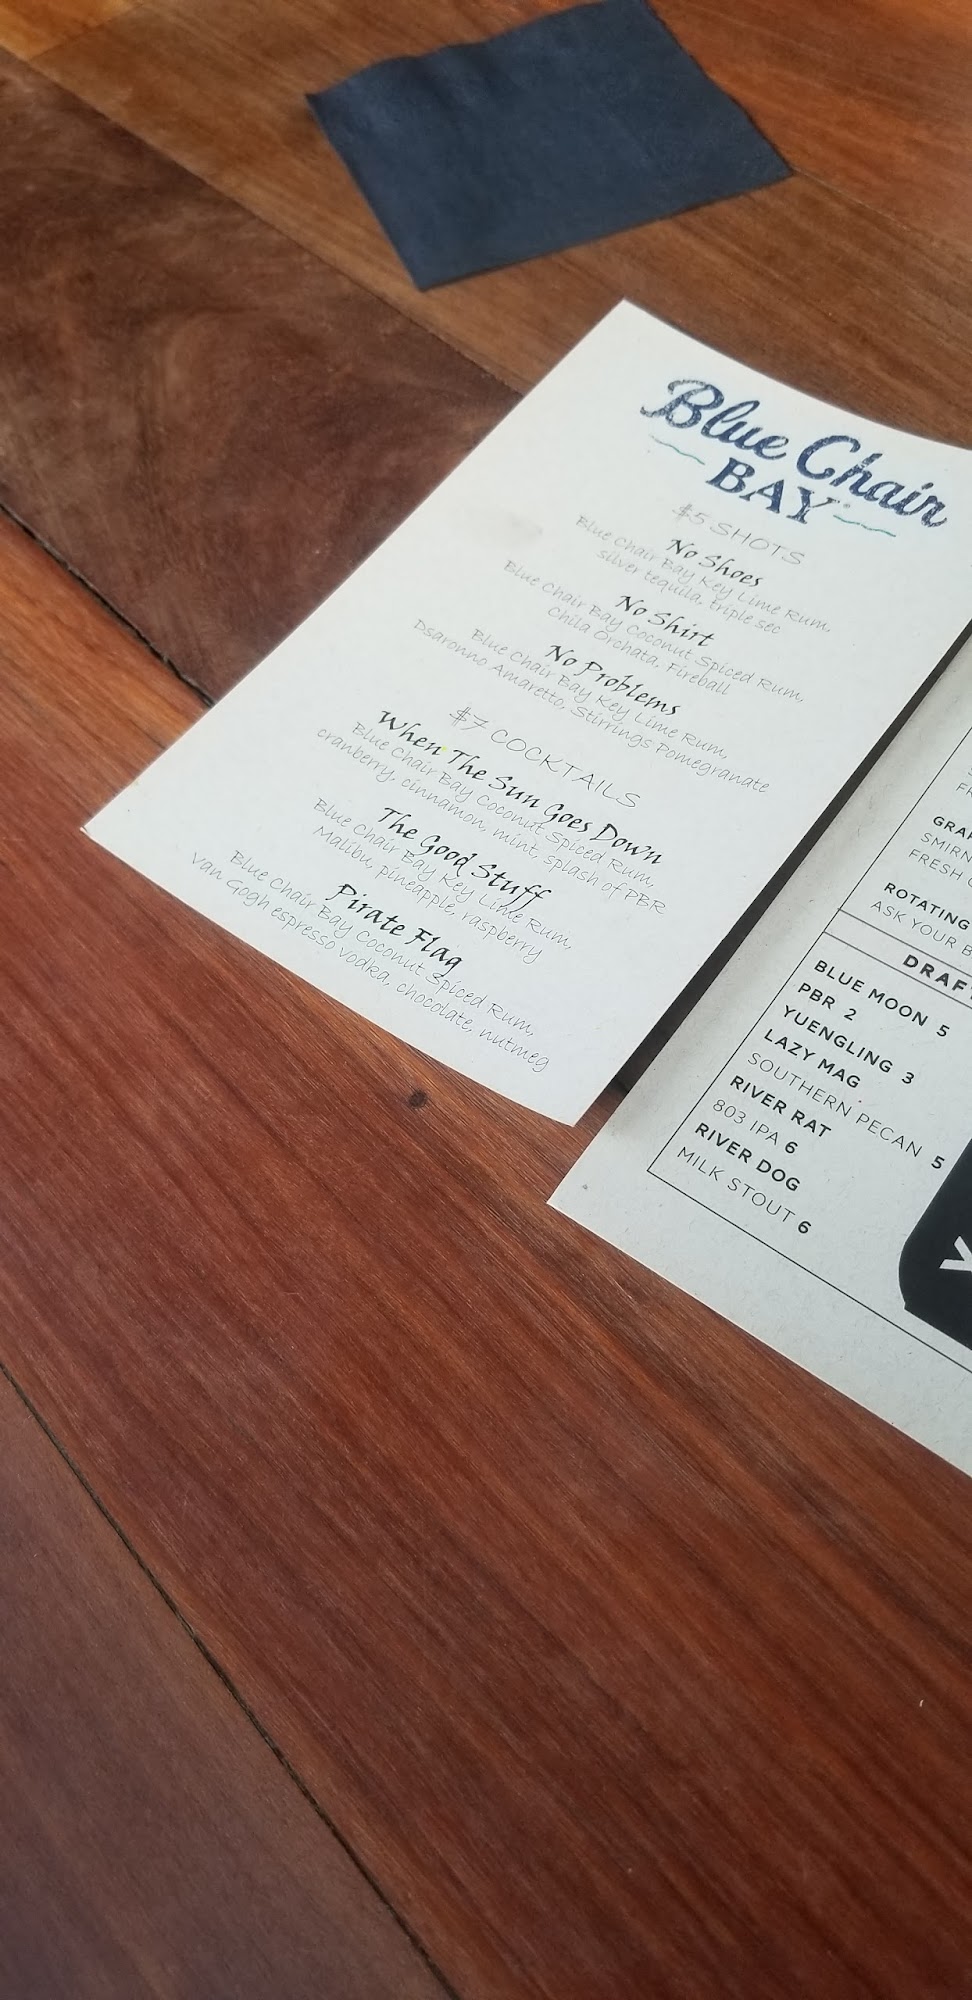 Blue Chair
BAY
$5 SHOTS
No Shoes
Blue Chair Bay Key Lime Rum,
silver tequila, triple sec
No Shirt
Blue Chair Bay Coconut Spiced Rum,
Chila Orchata, Fireball
No Problems
Blue Chair Bay Key Lime Rum,
Dsaronno Amaretto, Stirrings Pomegranate
$7 COCKTAILS
When The Sun Goes Down
Blue Chair Bay Coconut Spiced Rum,
cranberry, cinnamon, mint, splash of PBR
The Good Stuff
Blue Chair Bay Key Lime Rum,
Malibu, pineapple, raspberry
Pirate Flag
Blue Chair Bay Coconut Spiced Rum,
Van Gogh espresso vodka, chocolate, nutmeg
FR
GRAP
SMIRN
FRESH
ROTATING
ASK YOUR B
DRAF
BLUE MOON 5
PBR 2
YUENGLING 3
LAZY MAG
SOUTHERN PECAN 5
RIVER RAT
803 IPA 6
RIVER DOG
MILK STOUT 6